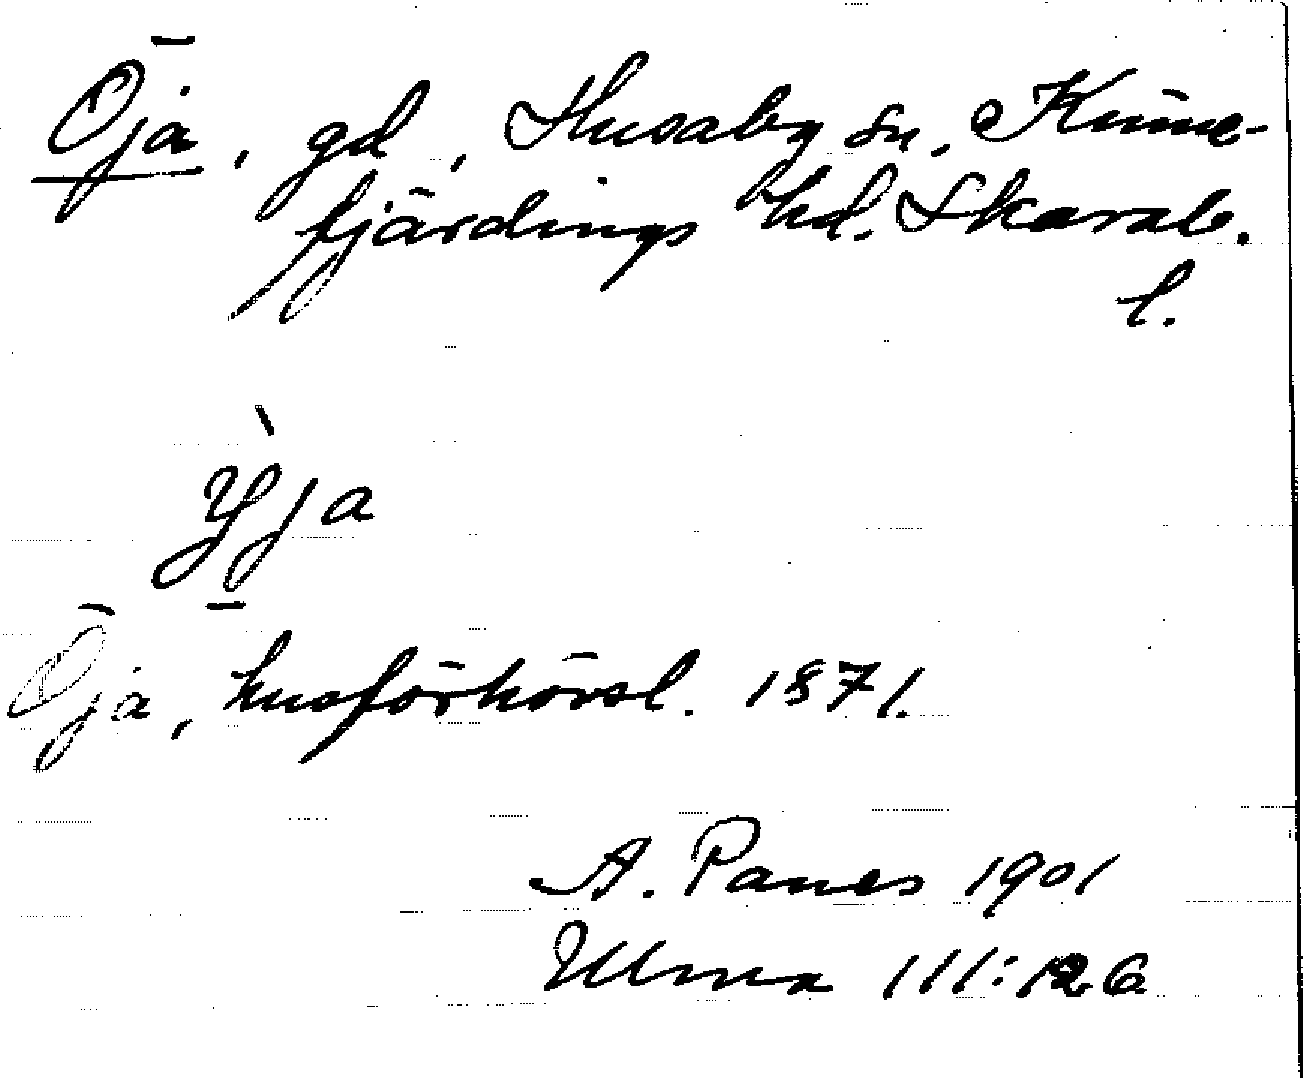 Öja, gd, Husaby sn, Kinne-
fjärdings hd. Skarab.
l.
Yja
Öja, husförhörsl. 1871.
A. Paues 1901
Ulma 111:126